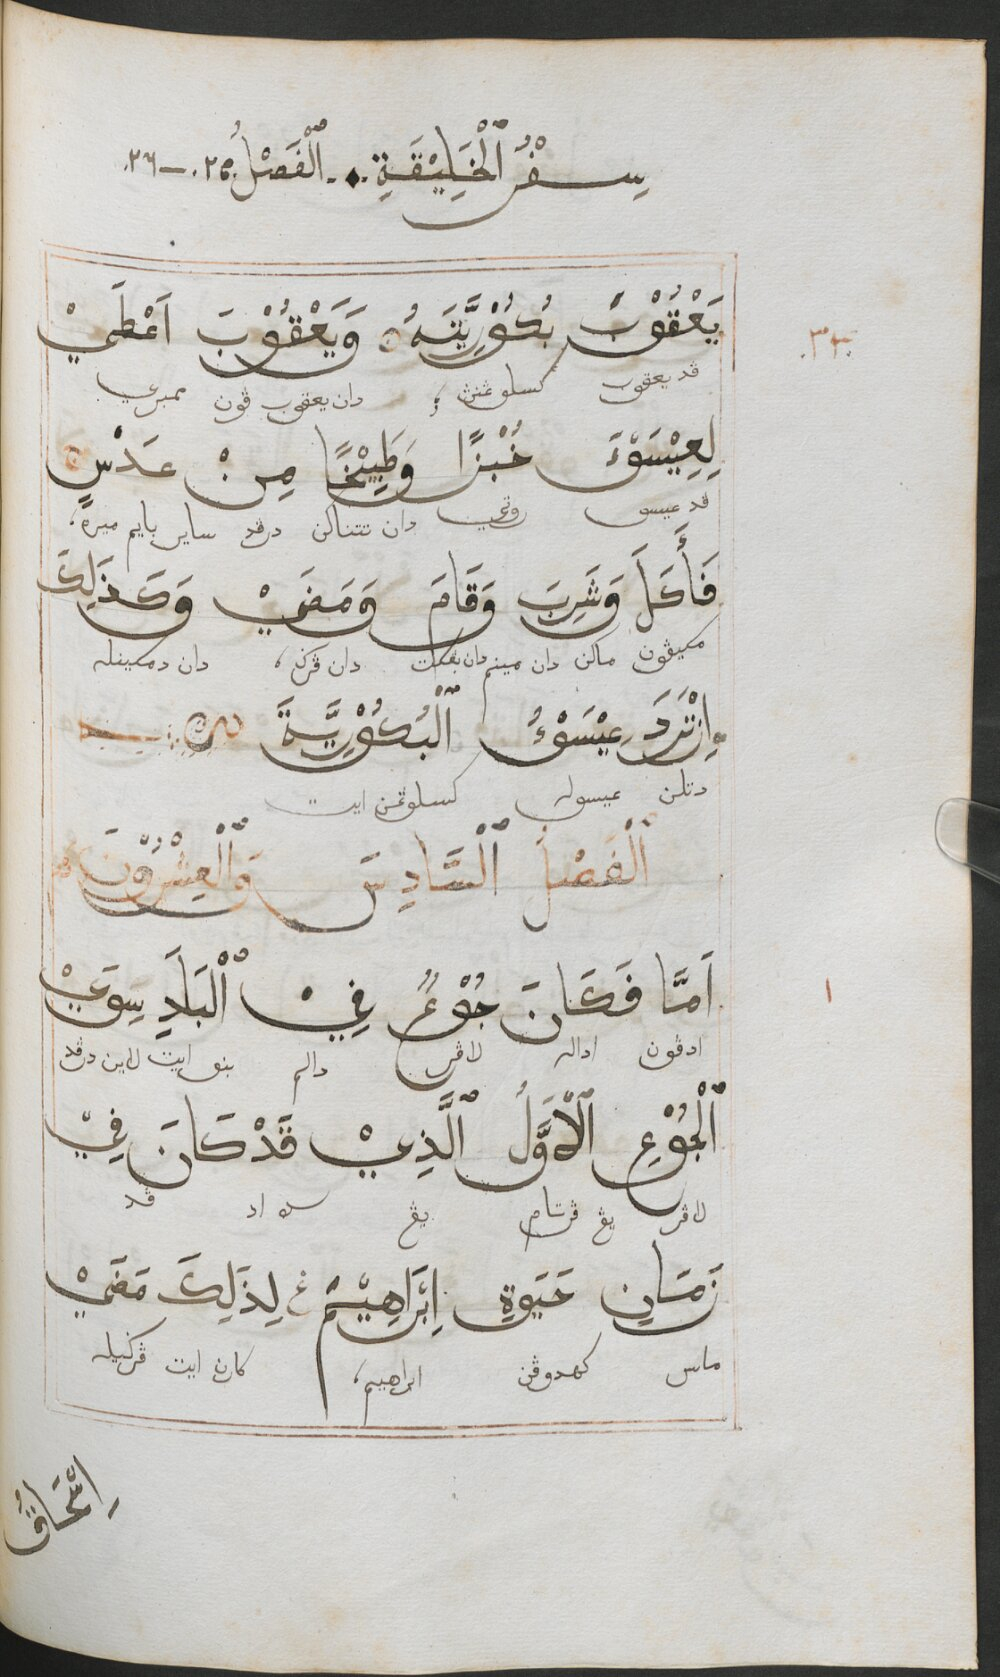 سِفْرُ ٱلْخَلِيْقَةِ ٱلْفَصْلُ ٢٥ — ٢٦
يَعْقُوْبَ بُكُوْرِيَّتَهُ وَيَعْقُوْبَ اَعْطَيْ
٣٣
ڤد يعقوب كسلوڠنڽ دان يعقوب ڤون ممبري
لِعِيْسَوْءَ خُبْزًا وَطَبِيْخًا مِنْ عَدْسٍ
ڤد عيسو روتي دان تتناكن درڤد ساير بايم ميره،
فَأَكَلَ وَشَرِبَ وَقَامَ وَمَضَيْ وَكَذَلِكَ
مكيڤون ماكن دان مينم دان بڠكت دان ڤرݢي، دان دمكينله
اِزْتَرَدَ عِيْسَوْءُ ٱلْبُكُوْرِيَّةَ
دتلن عيسوله كسلوڠن ايت
ٱلْفَصْلُ ٱلسَّادِسَ وَٱلْعِشْرُوْنَ
اَمَّا فَكَانَ جُوْعٌ فِيْ ٱلْبَلَادِ سِوَيْ
١
ادڤون اداله لاڤر دالم بنو ايت لاين درڤد
ٱلْجُوْعِ ٱلْاَوَّلُ ٱلَّذِيْ قَدْ كَانَ فِيْ
لاڤر يڠ ڤرتام يڠ سده اد ڤد
زَمَانِ حَيَوةِ اِبْرَاهِيْمَ لِذَلِكَ مَضَيْ
ماس كهدوڤن ابراهيم، كارن ايت ڤرݢيله
اِسْحَاقُ